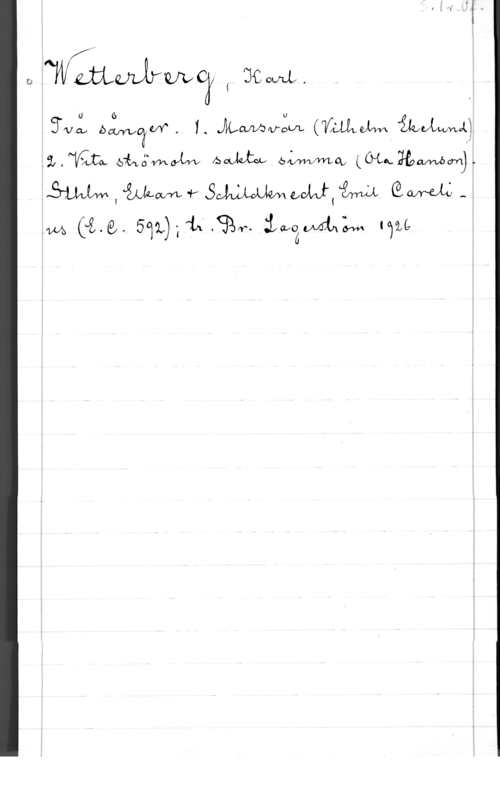 Wetterberg, Karl.
Två sånger. 1. Marsvår (Vilhelm Ekelund)
2. Vita strömoln sakta simma (Ola Hanson).
Sthlm, Elkan & Schildknecht, Emil Careli-
us (E.C. 592); tr. Br. Lagerström 1926